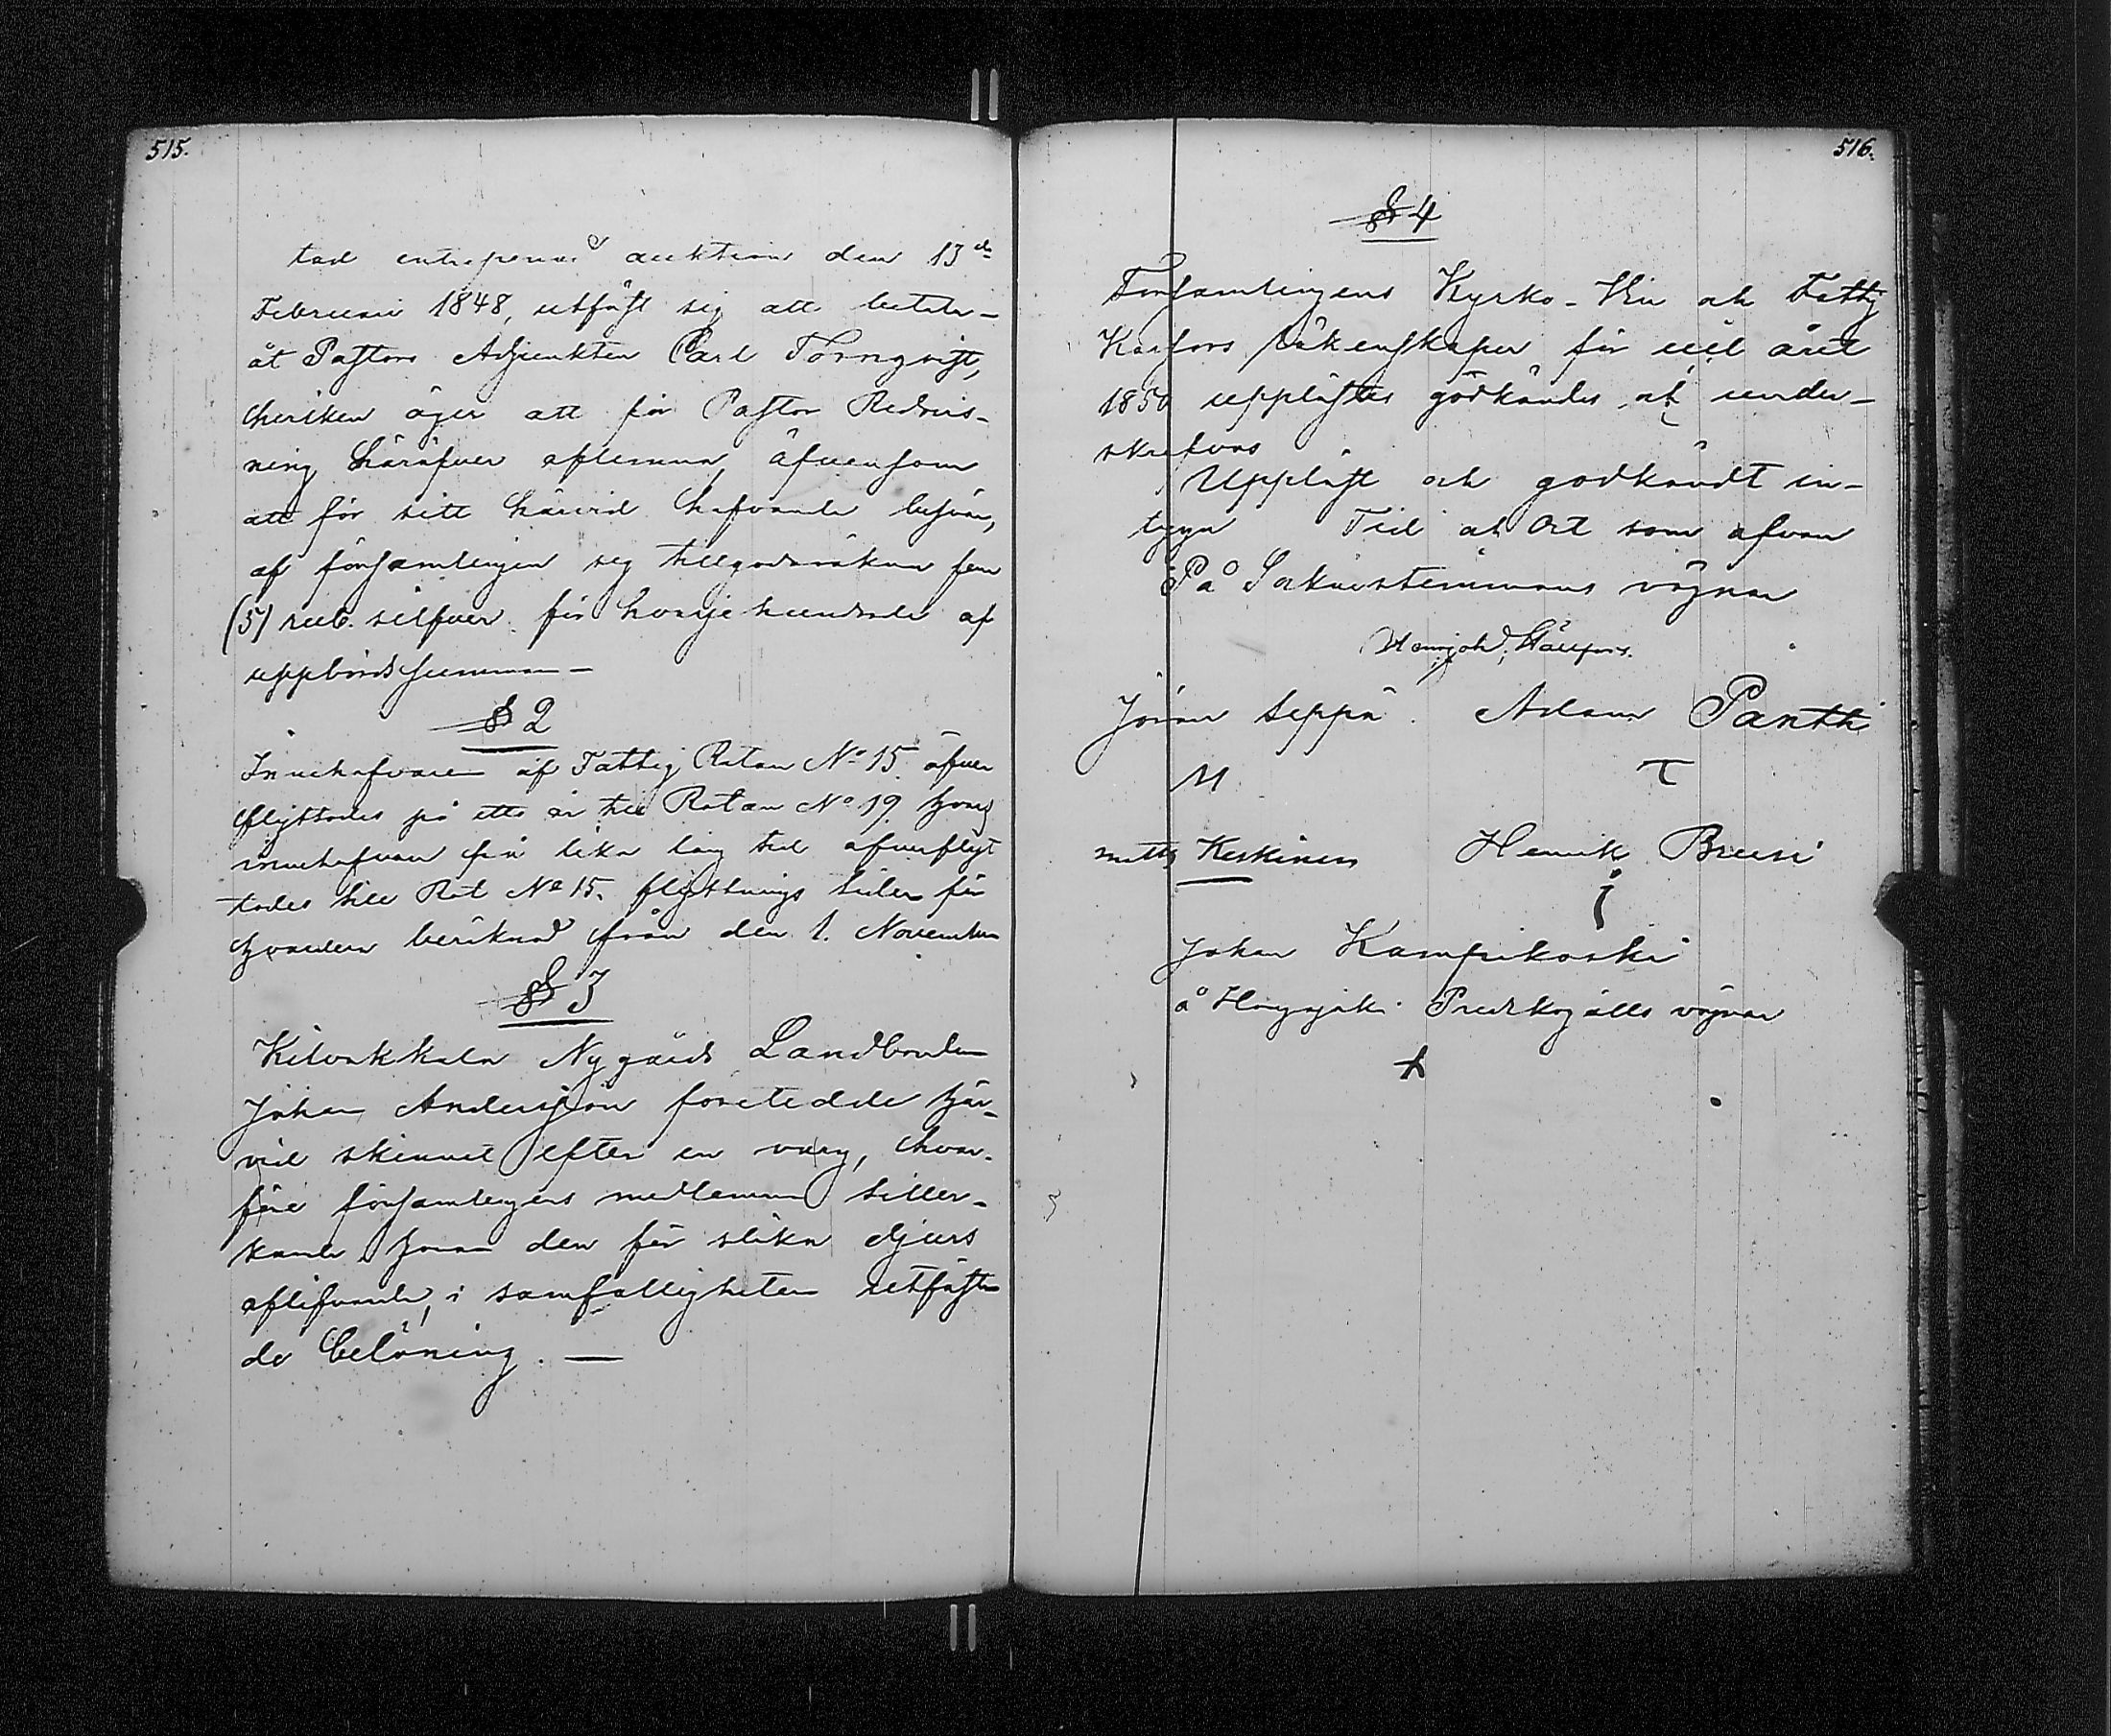 515.
tad entreprenad auktion den 13de
Februari 1848, utfäst sig att betala
åt Pastors Adjunkten Carl Törnqvist,
hvilken äger att för Pastor Redovis-
ning häröfver aflemna, äfvensom
att för sitt härvid hafvande besvär,
af församlingen sig tillgodoräkna fem
(5) rub. silfver för hvarje hundrade af
uppbördssumman —
§ 2
Innehafvaren af Fattig Rotan No 15 öfver
flyttades på ett år till Rotan No 19 hvars
innehafvare för lika lång tid öfverflyt
tades till Rot No 15. flyttnings tiden för
hvardera beräknad från den 1. November
§ 3
Kilvakkala Nygårds Landbonden
Johan Andersson företedde här-
vid skinnet efter en varg, hvar-
före församlingens medlemmar tiller-
kände honom den för slika djurs
aflifvande, i samfälligheten utfästa
de belöning. —
516.
§ 4
Församlingens Kyrko- Vin och Fattig
Kassors räkenskaper för
1850 upplästes godkändes och under-
skrefvos
Uppläst och godkändt in-
tyga Tid och Ort som ofvan
På Sockenstemmans vägnar
Jöran Seppä. Adam Pantti
M T
Matts Keskinen Henrik Brusi
Johan Kampikoski
å vägnar